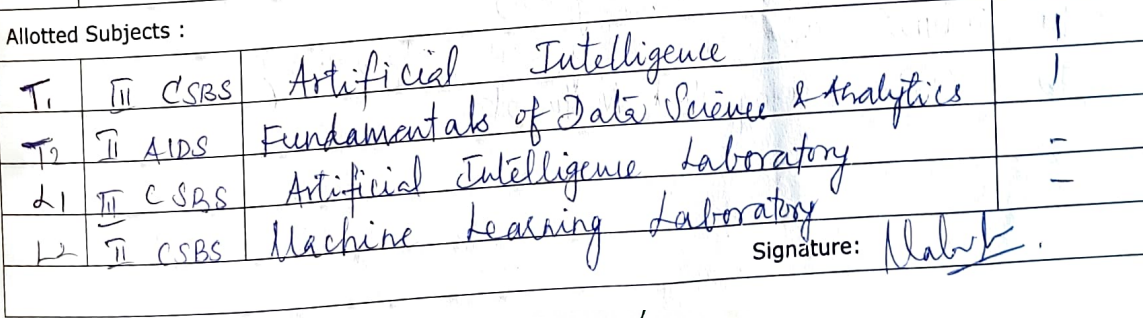 Allotted Subjects :
T1 III CSBS Artificial Intelligence 1
T2 II AIDS Fundamentals of Data Science & Analytics 1
L1 III CSBS Artificial Intelligence Laboratory -
L2 II CSBS Machine Learning Laboratory -
Signature: